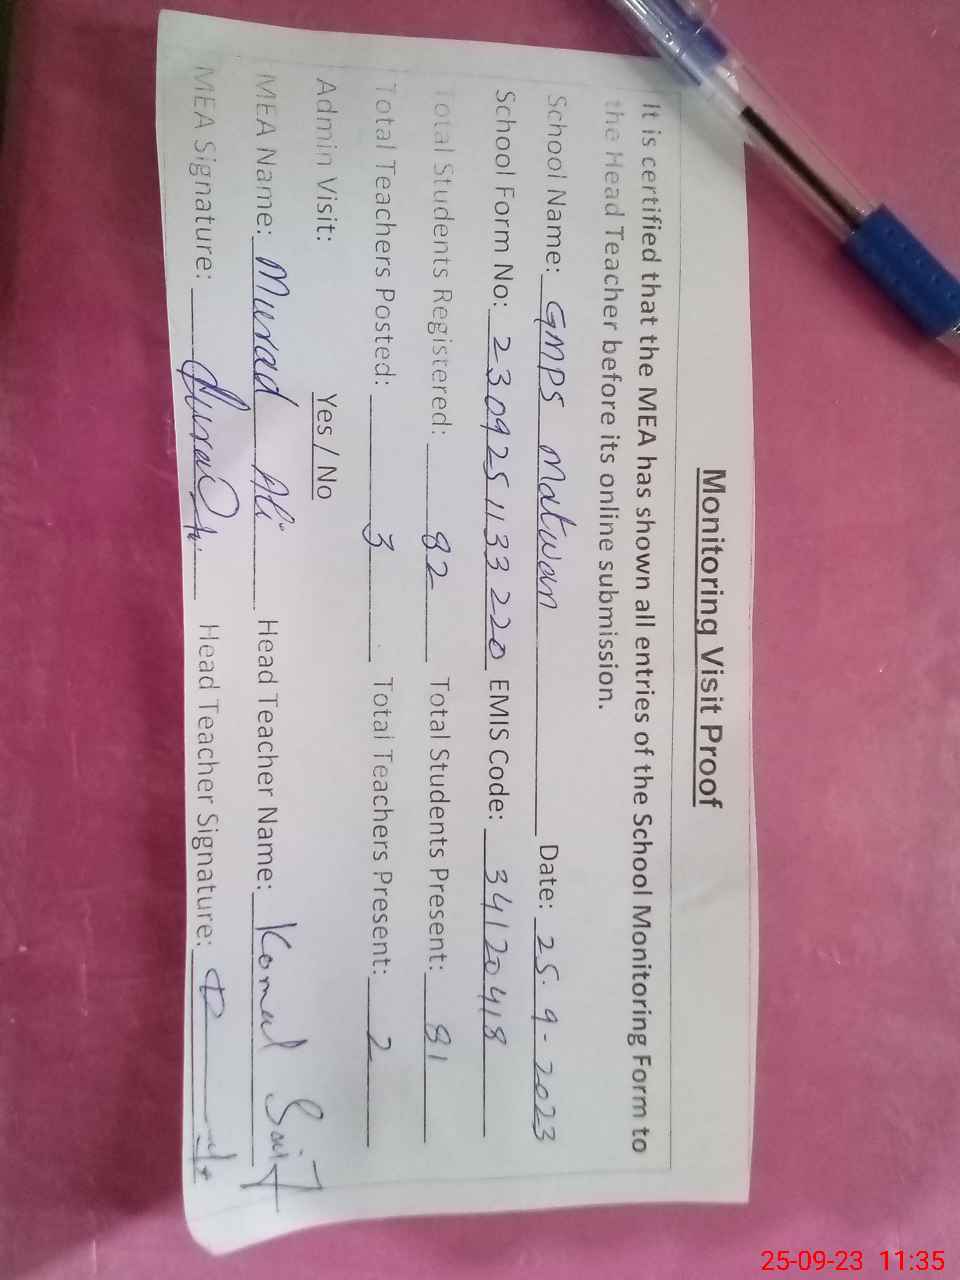 Monitoring Visit Proof
It is certified that the MEA has shown all entries of the School Monitoring Form to
the Head Teacher before its online submission.
School Name: GMPS Matwan Date: 25-9-2023
School Form No: 230925 1133 220 EMIS Code: 34120418
Total Students Registered: 82 Total Students Present: 81
Total Teachers Posted: 3 Total Teachers Present: 2
Admin Visit: Yes / No
MEA Name: Murad Ali Head Teacher Name: Komal
MEA Signature: Head Teacher Signature:
25-09-23 11:35